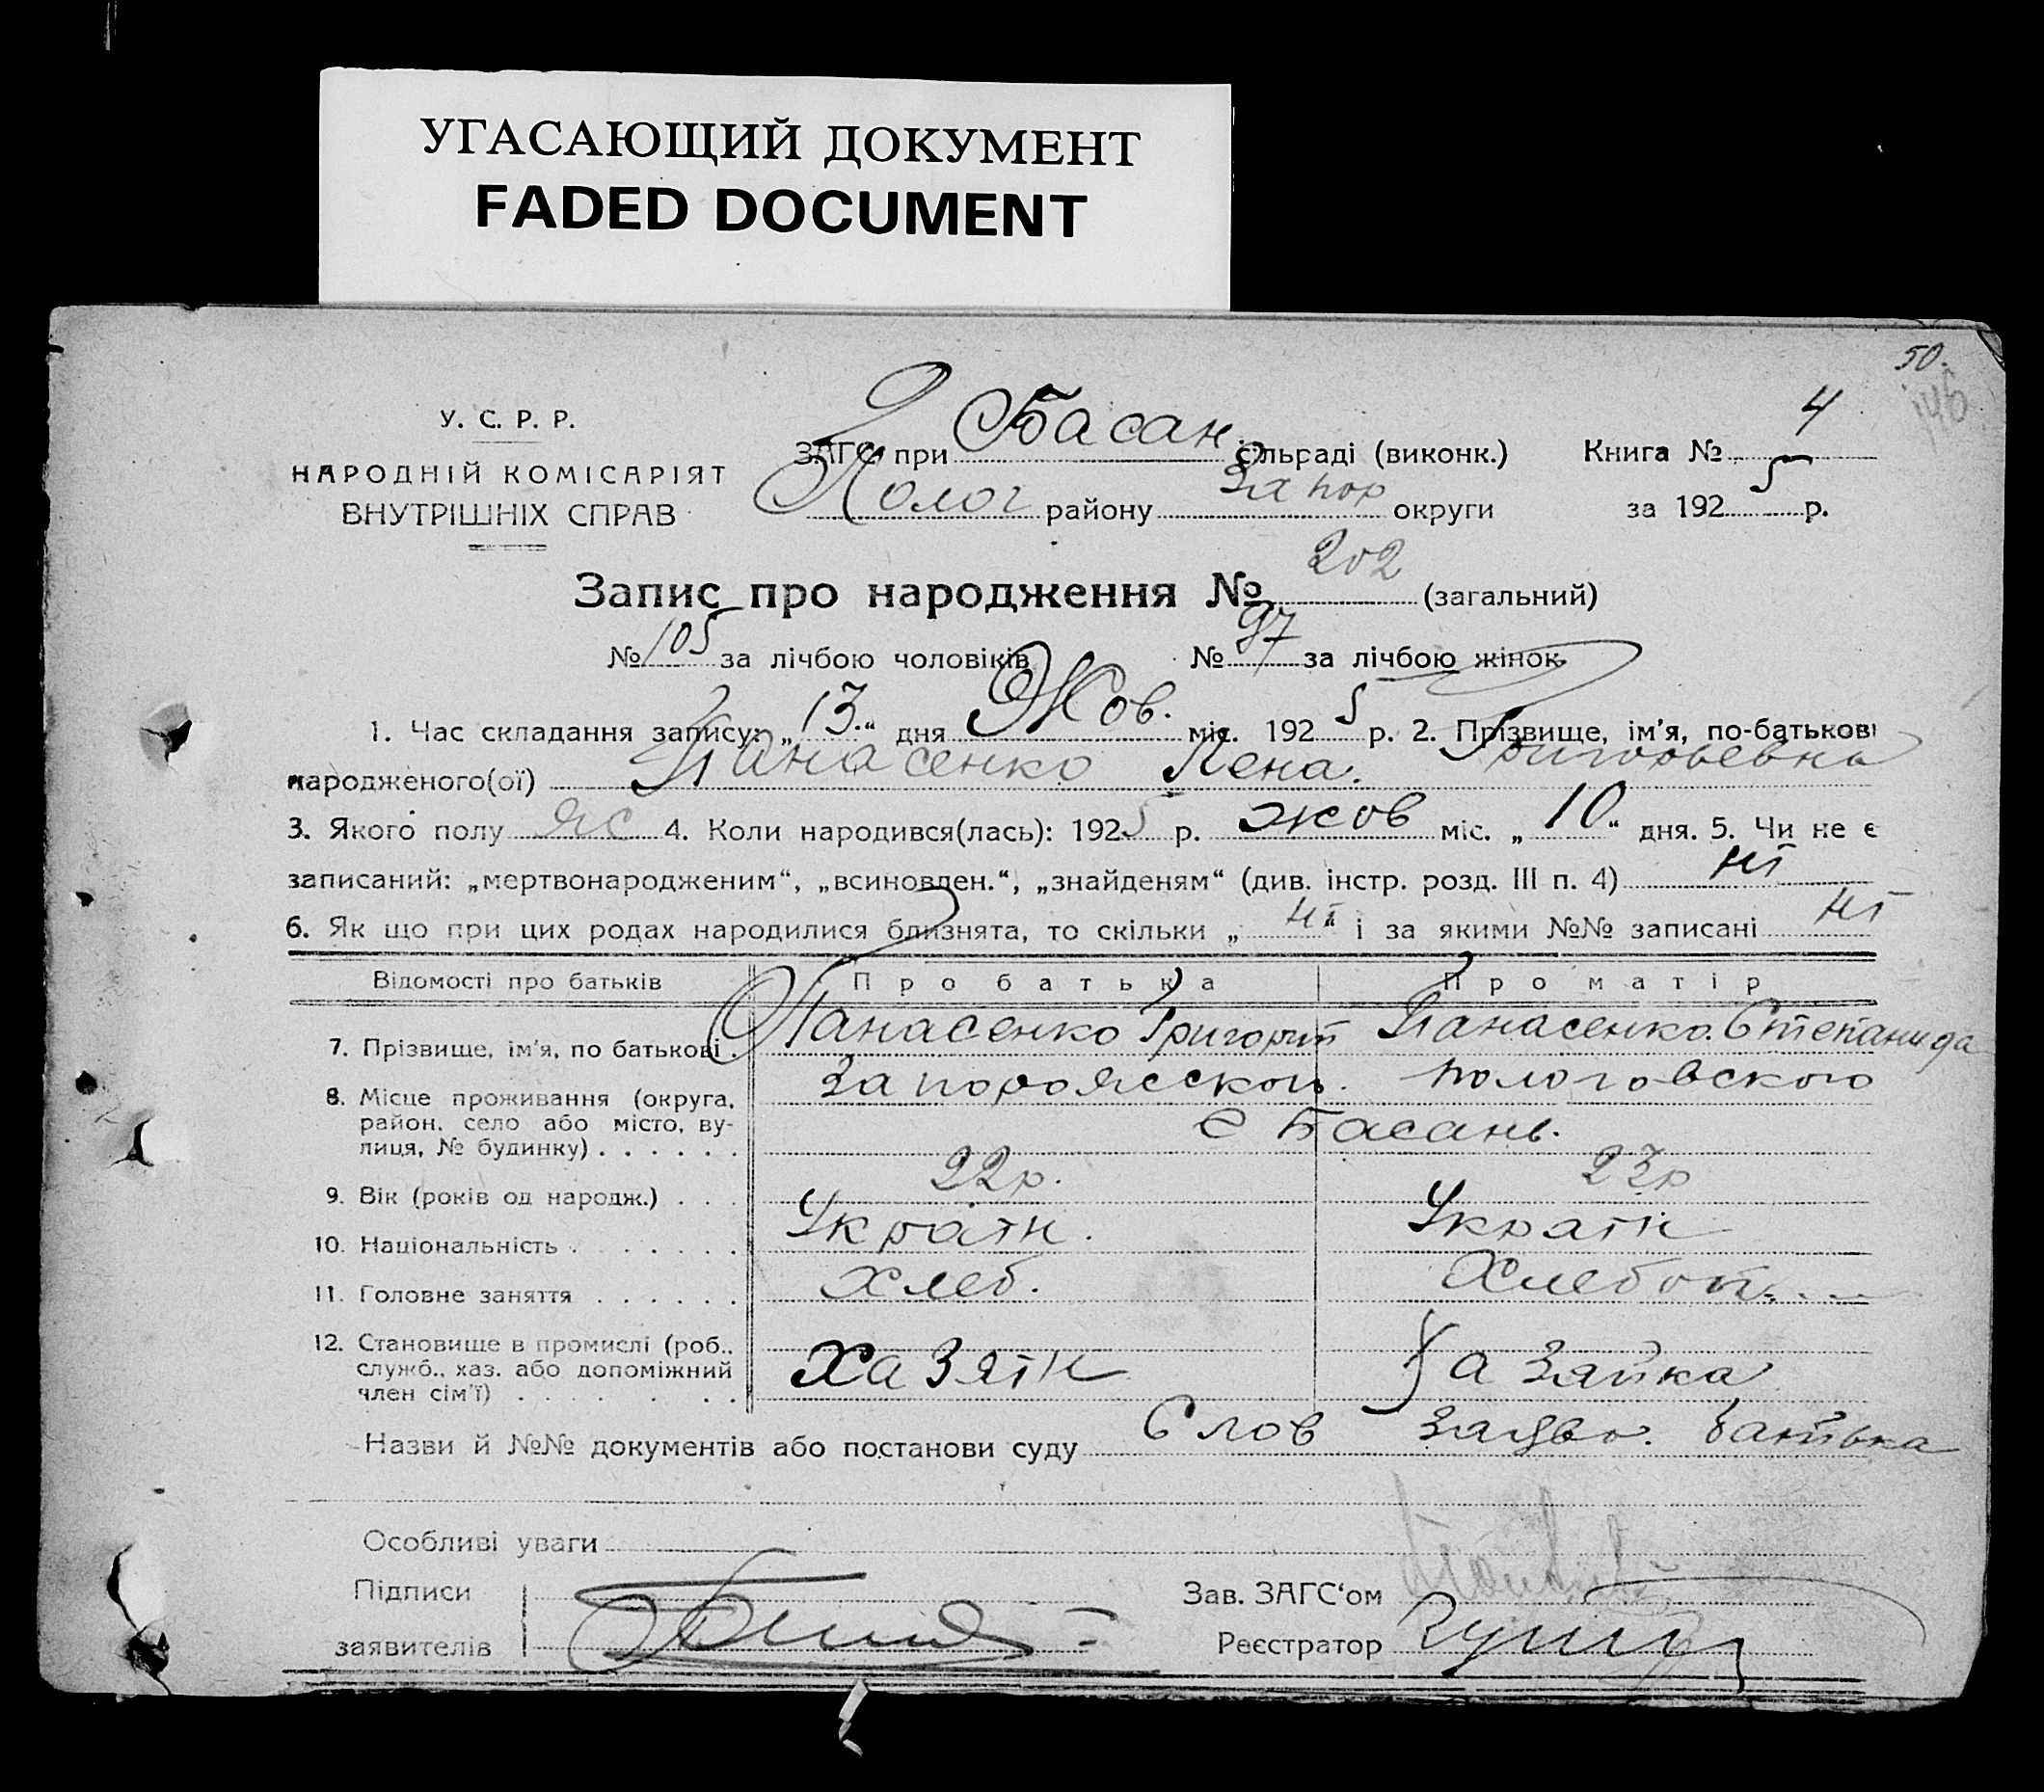 УГАСАЮЩИЙ ДОКУМЕНТ
FADED DOCUMENT
50.
146
У. С. Р. Р.
НАРОДНІЙ КОМІСАРІЯТ
ВНУТРІШНІХ СПРАВ
ЗАГС при Басан сільраді (виконк.) Книга № 4
Полог району Запор округи за 1925 р.
Запис про народження № 202 (загальний)
№ 105 за лічбою чоловіків № 97 за лічбою жінок
1. Час складання запису: „13“ дня Жов. міс. 1925 р. 2. Прізвище, ім'я, по-батькові
народженого(ої) Панасенко Лена. Григорьевна
3. Якого полу ж 4. Коли народився(лась): 1925 р. жов міс. „10“ дня. 5. Чи не є
записаний: „мертвонародженим“, „всиновлен.“, „знайденям“ (див. інстр. розд. III п. 4) ні
6. Як що при цих родах народилися близнята, то скільки „ні“ і за якими №№ записані ні
Відомості про батьків Про батька Про матір
7. Прізвище, ім'я, по батькові . Панасенко Григорий Панасенко. Степанида
8. Місце проживання (округа, Запорожской. Пологовского
район. село або місто, ву- с Басань.
лиця, № будинку) . . . . . .
9. Вік (років од народж.) . . . 22р. 23р
10. Національність . . . . . . . Україн. Україн
11. Головне заняття . . . . . . Хлеб. Хлебоп.
12. Становище в промислі (роб..
служб.. хаз. або допоміжний Хазяїн Хазяйка
член сім'ї) . . . . . . .
Назви й №№ документів або постанови суду Слов заяво. батька
Особливі уваги
Підписи Зав. ЗАГС'ом
заявителів Реєстратор